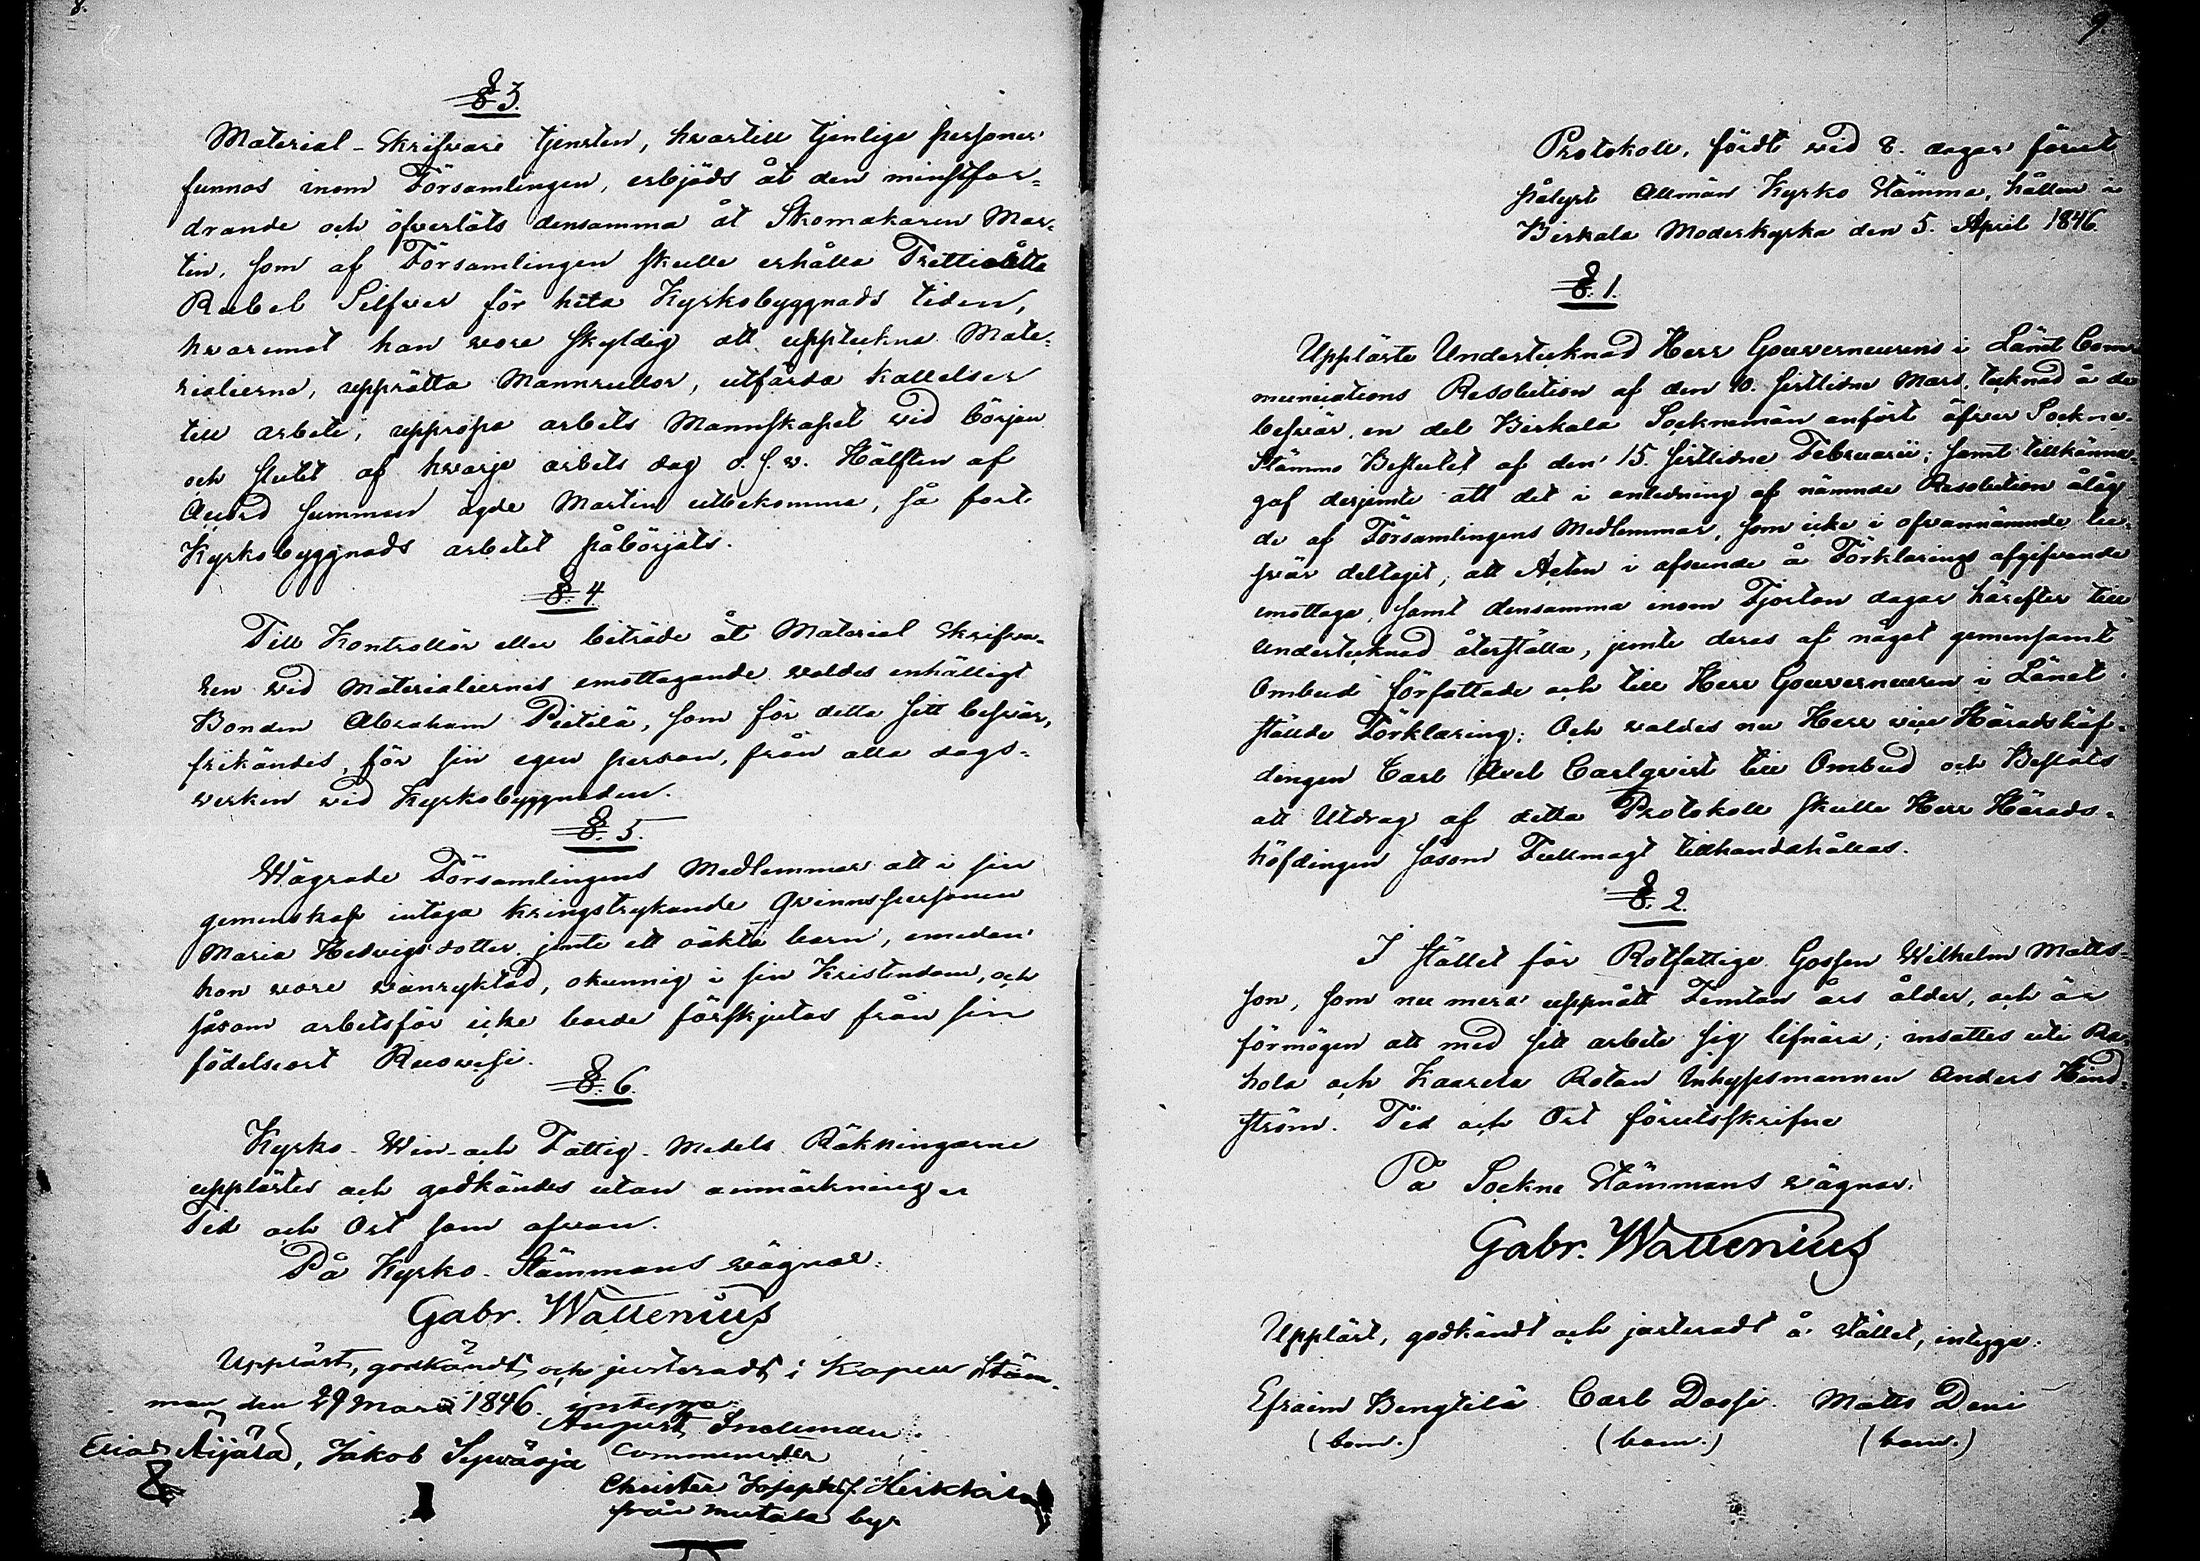 8.
§ 3.
Material-Skrifvare tjensten, hvartill tjenlige personer
funnos inom Församlingen, erbjöds åt den minstfor=
drande och öfverläts densamma åt Skomakaren Mar=
tin, som af Församlingen skulle erhålla Trettioåtta
Rubel Silfver för hela Kyrkobyggnads tiden,
hvaremot han vore skyldig att uppteckna Mate=
rialierna, upprätta Mannrullor, utfärda kallelser
till arbete, uppropa arbets Mannskapet vid början
och slutet af hvarje arbets dag o.s.v. Hälften af
Accord summan ägde Martin utbekomma, så fort
Kyrkobyggnads arbetet påbörjats.
§ 4.
Till Kontrollör eller biträde åt Material Skrifva-
ren vid Materialiernes emottagande valdes enhälligt
Bonden Abraham Pietilä, som för detta sitt besvär,
frikändes, för sin egen person, från alla dags=
verken vid Kyrkobyggnaden.
§ 5.
Wägrade Församlingens Medlemmar att i sin
gemenskap intaga kringstrykande Qvinnspersonen
Maria Hedvigsdotter jemte ett oäkta barn, emedan
hon vore vanryktad, okunnig i sin Kristendom, och
såsom arbetsför icke borde förskjutas från sin
födelseort Ruovesi.
§ 6.
Kyrko- Win- och Fattig-Medels Räkningarne
upplästes och godkändes utan anmärkningar
Tid och Ort som ofvan.
På Kyrko-Stämmans vägnar:
Gabr. Wallenius
Uppläst, godkändt och justeradt i Kapell Stäm-
man den 29 Mars 1846. intyga:
August Indeman
Elias Äijälä, Jakob Sepväsjä
Christer Josephsf
från Mutala by
9.
Protokoll, fördt vid 8. dagar förut
pålyst Allmän Kyrko Stämma, hållen i
Birkala Moderkyrka den 5. April 1846.
§ 1.
Upplärte Undertecknad Herr Gouverneurens i Länet Com=
munications Resolution af den 10. sistlidne Mars, tecknad å de
besvär, en del Birkala Socknemän anfört öfver Sockne-
Stämmo Beslutet af den 15. sistlidne Februarii; samt tillkänna=
gaf derjemte att det i anledning af nämnde Resolution ålåg
de af Församlingens Medlemmar, som icke i ofvannämnde be=
svär deltagit, att Acten i afseende å Förklarings afgifvande
emottaga, samt densamma inom Fjorton dagar härefter till
Undertecknad återställa, jemte deras af något gemensamt
Ombud författade och till Herr Gouverneuren i Länet
ställde Förklaring; Och valdes nu Herr vice Häradshöf=
dingen Carl Axel Carlqvist till Ombud och Beslöts
att Utdrag af detta Protokoll skulle Herr Härads=
höfdingen såsom Fullmagt tillhandahållas.
§ 2.
I stället för Rotfattige Gossen Wilhelm Matts=
son, som nu mera uppnått Femton års ålder, och är
förmögen att med sitt arbete sig lifnära, insattes uti Ra=
hola och Kaarela Rotan Inhysesmannen Anders Hind=
ström. Tid och Ort förutskrifne
På Sockne Stämmans vägnar:
Gabr. Wallenius
Uppläst, godkändt och justeradt å stället, intyga:
Efraim Bengtilä Carl Dassi Matts Deni
(bom.) (bom.) (bom.)